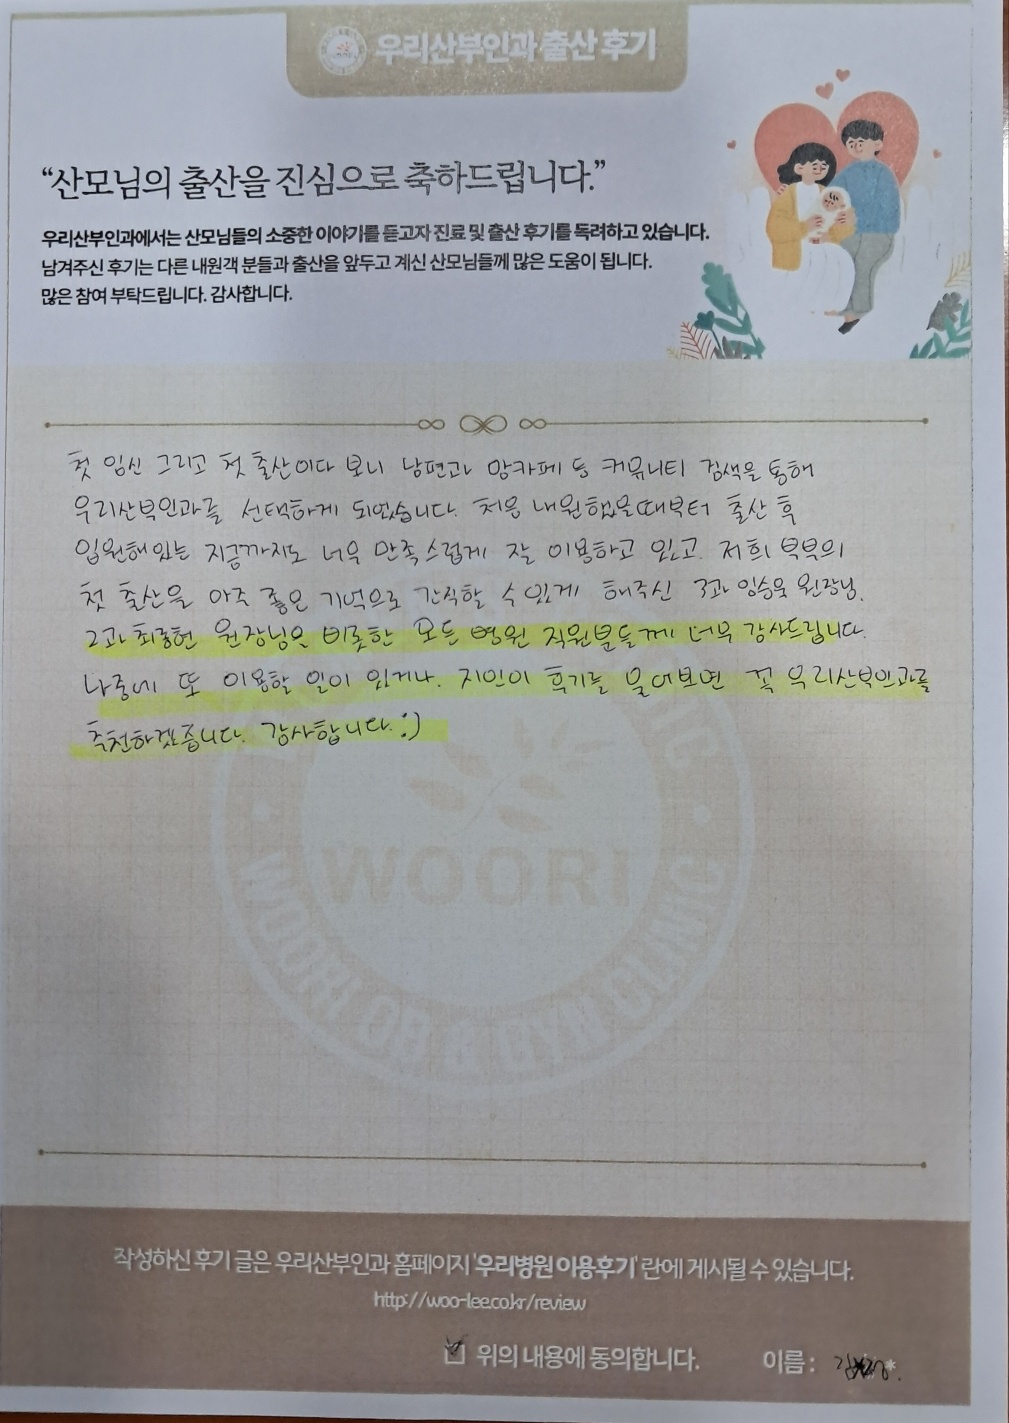 우리산부인과 출산 후기
“산모님의 출산을 진심으로 축하드립니다.”
우리산부인과에서는 산모님들의 소중한 이야기를 듣고자 진료 및 출산 후기를 독려하고 있습니다.
남겨주신 후기는 다른 내원객 분들과 출산을 앞두고 계신 산모님들께 많은 도움이 됩니다.
많은 참여 부탁드립니다. 감사합니다.
첫 임신 그리고 첫 출산이다 보니 남편과 맘카페 등 커뮤니티 검색을 통해
우리산부인과를 선택하게 되었습니다. 처음 내원했을때부터 출산 후
입원해있는 지금까지도 너무 만족스럽게 잘 이용하고 있고. 저희 부부의
첫 출산을 아주 좋은 기억으로 간직할 수 있게 해주신 3과 임승욱 원장님.
2과 최종현 원장님을 비롯한 모든 병원 직원분들께 너무 감사드립니다.
나중에 또 이용할 일이 있거나. 지인이 후기를 물어보면 꼭 우리산부인과를
추천하겠습니다. 감사합니다. :)
WOORI
WOORI OB & GYN CLINIC
작성하신 후기 글은 우리산부인과 홈페이지 '우리병원 이용후기' 란에 게시될 수 있습니다.
http://woo-lee.co.kr/review
위의 내용에 동의합니다. 이름 :